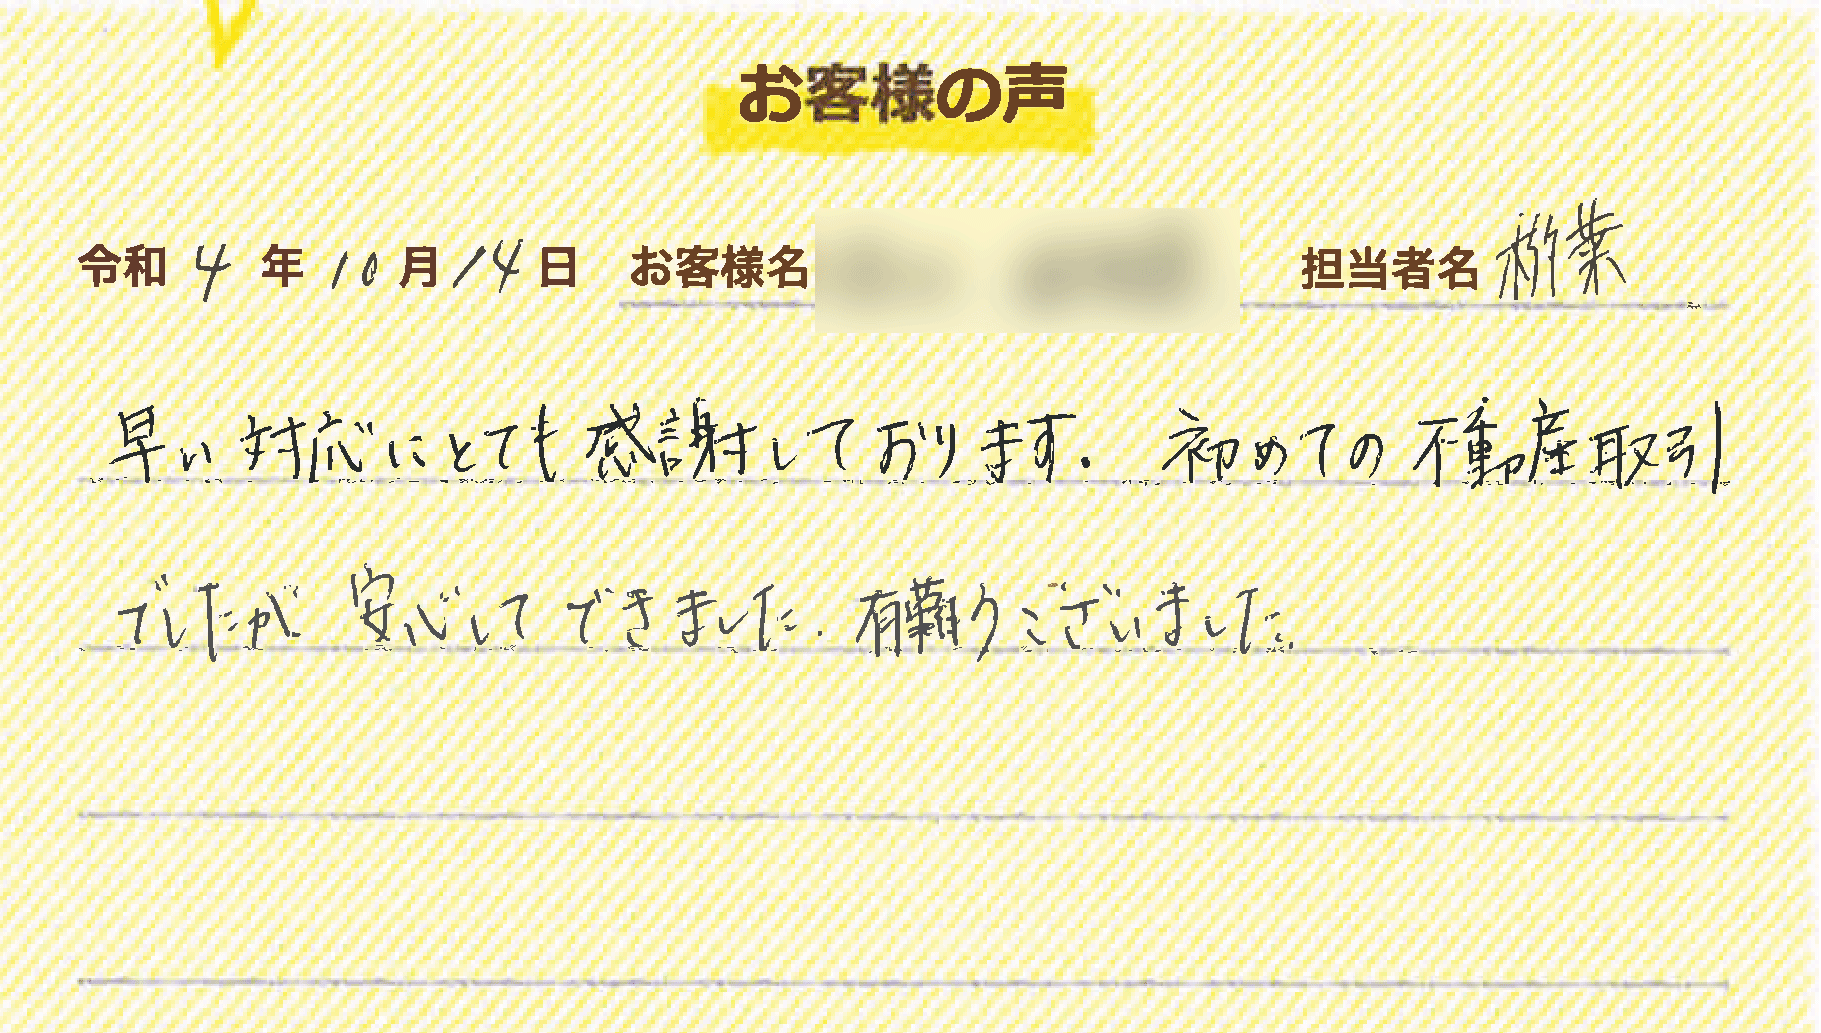 お客様の声
令和 4 年 10 月 14 日 お客様名 担当者名
早い対応にとても感謝しております. 初めての不動産取引
でしたが 安心して できました. 有難うございました.